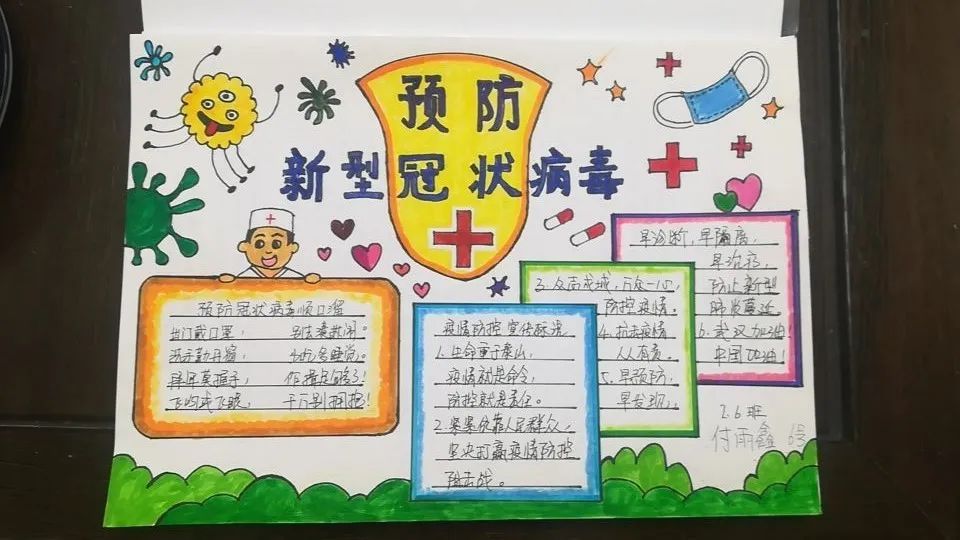 预防
新型冠状病毒
预防冠状病毒顺口溜
出门戴口罩, 别去凑热闹。
洗手勤
拜年莫握手, 作揖是
飞吻或飞眼, 千万别拥抱!
疫情防控宣传标语
1. 生命重于泰山,
疫情就是命令,
防控就是责任。
2. 紧紧依靠人民群众,
坚决打赢疫情防控
阻击战。
3. 众志成城, 万众一心,
防控疫情。
4. 抗击疫情
人人有责。
5. 早预防,
早发现,
早诊断, 早隔离,
早治疗,
防止新型
肺炎蔓延
6. 武汉加油!
中国加油!
2.6班
付雨鑫